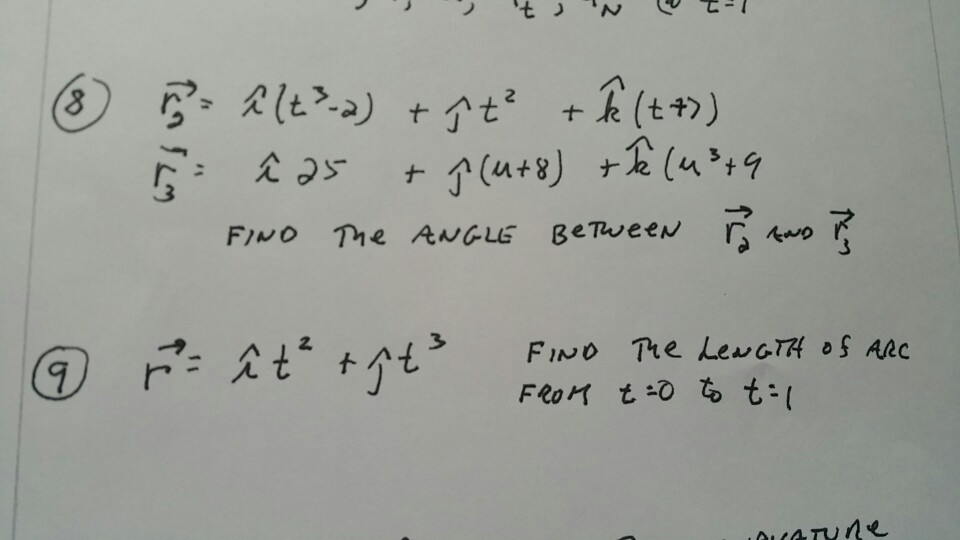 t, N @ t=1
⑧ r⃗₂= î(t³-2) + ĵt² + k̂(t+7)
r⃗₃= î 25 + ĵ(u+8) + k̂(u³+9
FIND The ANGLE BeTWEEN r⃗₂ AND r⃗₃
⑨ r⃗= ît² + ĵt³ FIND The LeNGTH of ARC
FROM t=0 to t=1